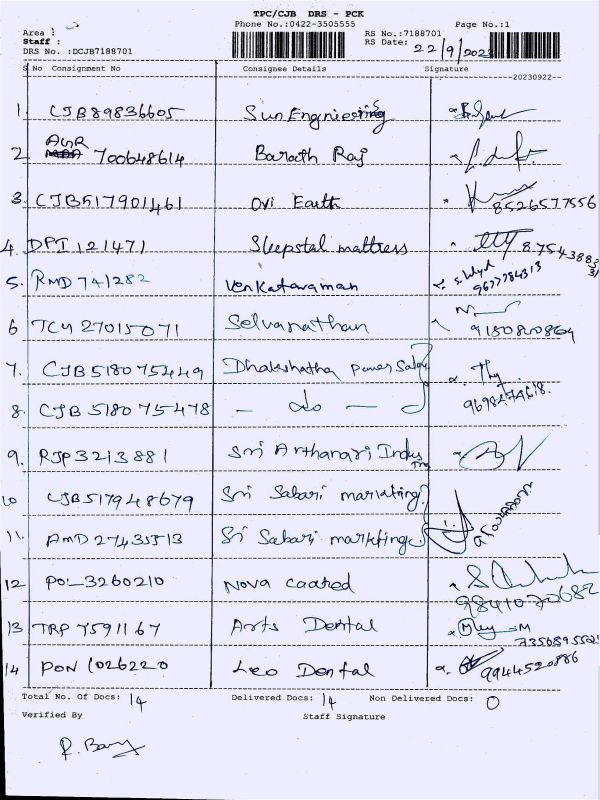 TPC/CJB DRS - PCK
Phone No.:0422-3505555 Page No.:1
Area :
Staff : RS No.:7188701
DRS No. :DCJB7188701 RS Date: 22/9/2022
S No Consignment No Consignee Details Signature
--20230922--
1. CJB89836605 Sun Engnieering
2 AMR 700648614 Barath Raj
3. CJB517901461 Ovi Earth 8526577556
4. DPI 121471 Sleepstal mattress
5. RMD 741282 Venkataraman 9677784313
6 TCY 27015071 Selvanathan
7. CJB518075449 Dhakshatha power
8. CJB 5180 75478 - do -
9. RJP3213881 Sri Arthanari Indus
10 CJB517948679 Sri Sabari marketing
11. AMD 27435513 Sri Sabari marketing
12 POL3260210 Nova coated
13 TRP 7591167 Arts Dental
14 PON 1026220 Leo Dental 9944520886
Total No. Of Docs: 14 Delivered Docs: 14 Non Delivered Docs: 0
Verified By Staff Signature